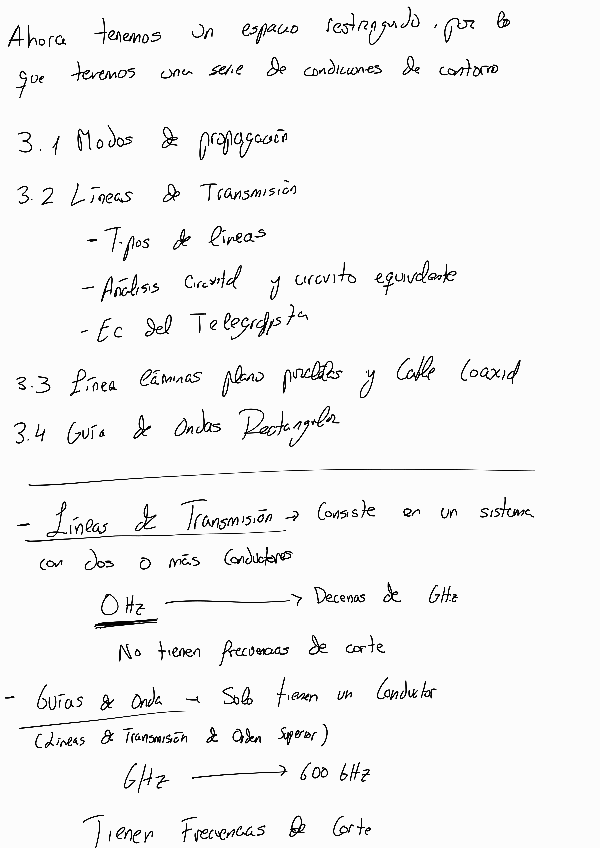 Ahora tenemos un espacio restringido, por lo
que tenemos una serie de condiciones de contorno
3.1 Modos de propagación
3.2 Líneas de Transmisión
- Tipos de líneas
- Análisis Circuital y circuito equivalente
- Ec del Telegrafista
3.3 Línea láminas plano paralelas y Cable Coaxial
3.4 Guía de Ondas Rectangular
- Líneas de Transmisión → Consiste en un sistema
con dos o más Conductores
0 Hz → Decenas de GHz
No tienen frecuencias de corte
- Guías de Onda → Solo tienen un Conductor
(Líneas de Transmisión de Orden Superior)
GHz → 600 GHz
Tienen Frecuencias de Corte